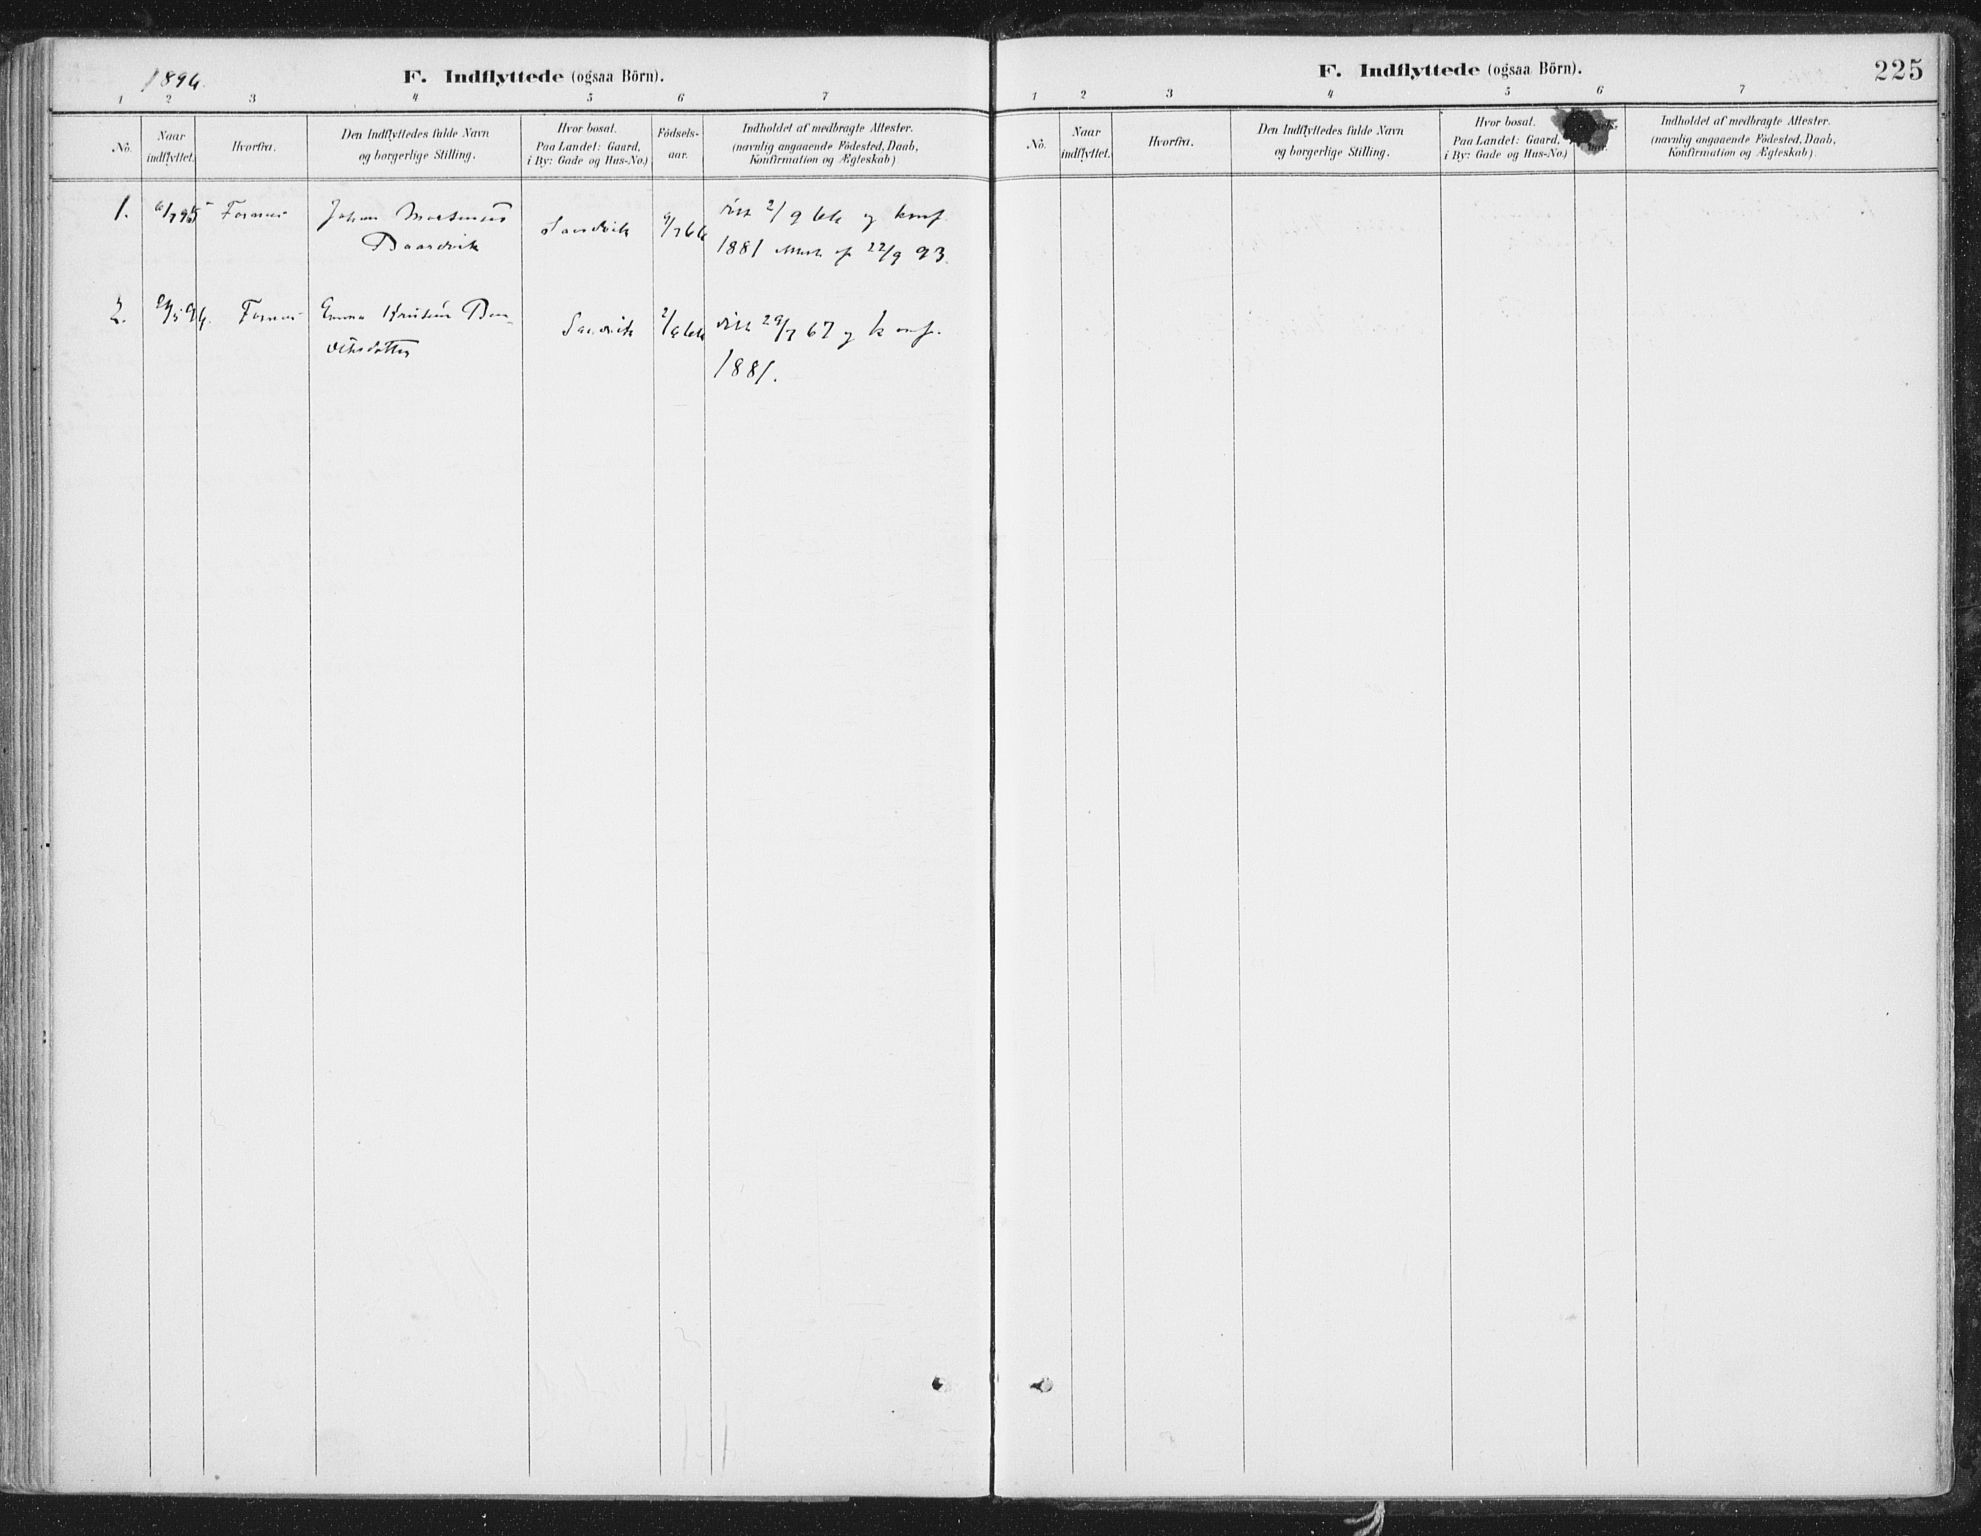 1896.
F. Indflyttede (ogsaa Börn).
1 2 3 4 5 6 7
No.
Naar
indflyttet.
Hvorfra.
Den Indflyttedes fulde Navn
og borgerlige Stilling.
Hvor bosat.
Paa Landet: Gaard,
i By: Gade og Hus-No.)
Födsels-
aar.
Indholdet af medbragte Attester.
(navnlig angaaende Födested, Daab,
Konfirmation og Ægteskab)
1. 6/7 95 Fosnæs Johan Mortensen Sandvik 9/7 66 2/9 66 og konf.
Baardvik 1881 22/9 93.
2. Fosnæs Emma Sandvik 2/ 29/7 67 og konf.
1881.
F. Indflyttede (ogsaa Börn).
225
1 2 3 4 5 6 7
No.
Naar
indflyttet.
Hvorfra.
Den Indflyttedes fulde Navn
og borgerlige Stilling.
Hvor bosat.
Paa Landet: Gaard,
i By: Gade og Hus-No.)
Indholdet af medbragte Attester.
(navnlig angaaende Födested, Daab,
Konfirmation og Ægteskab)